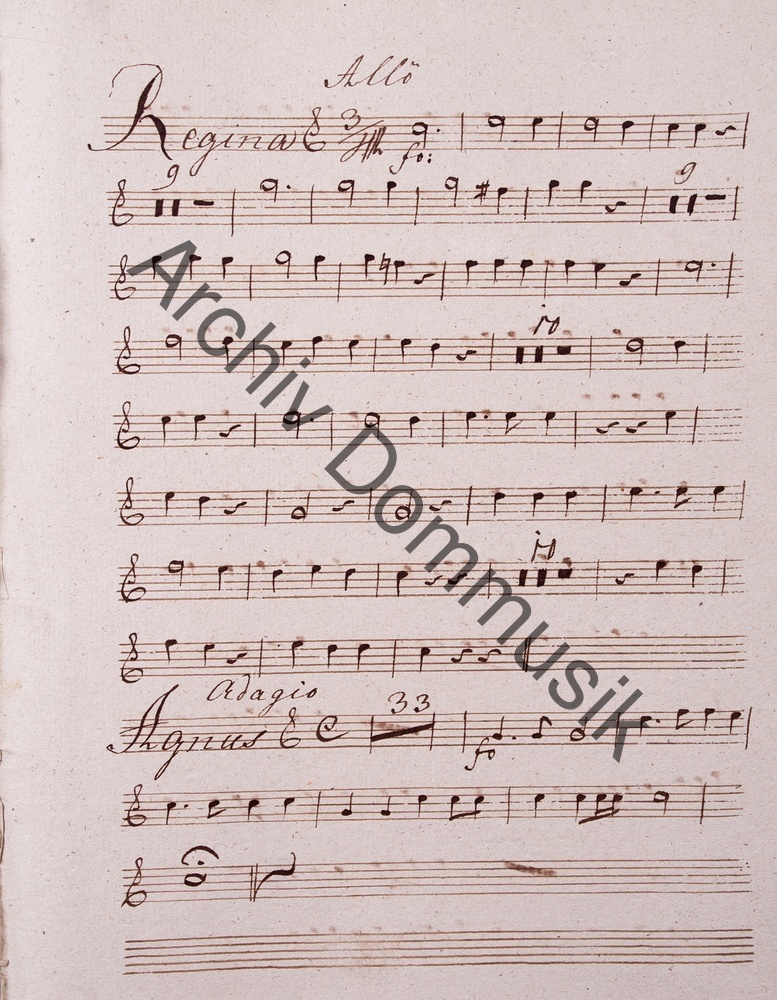 Allo
Regina 3/4
fo:
9
9
10
10
Adagio
33
Agnus C
fo
Archiv Dommusik